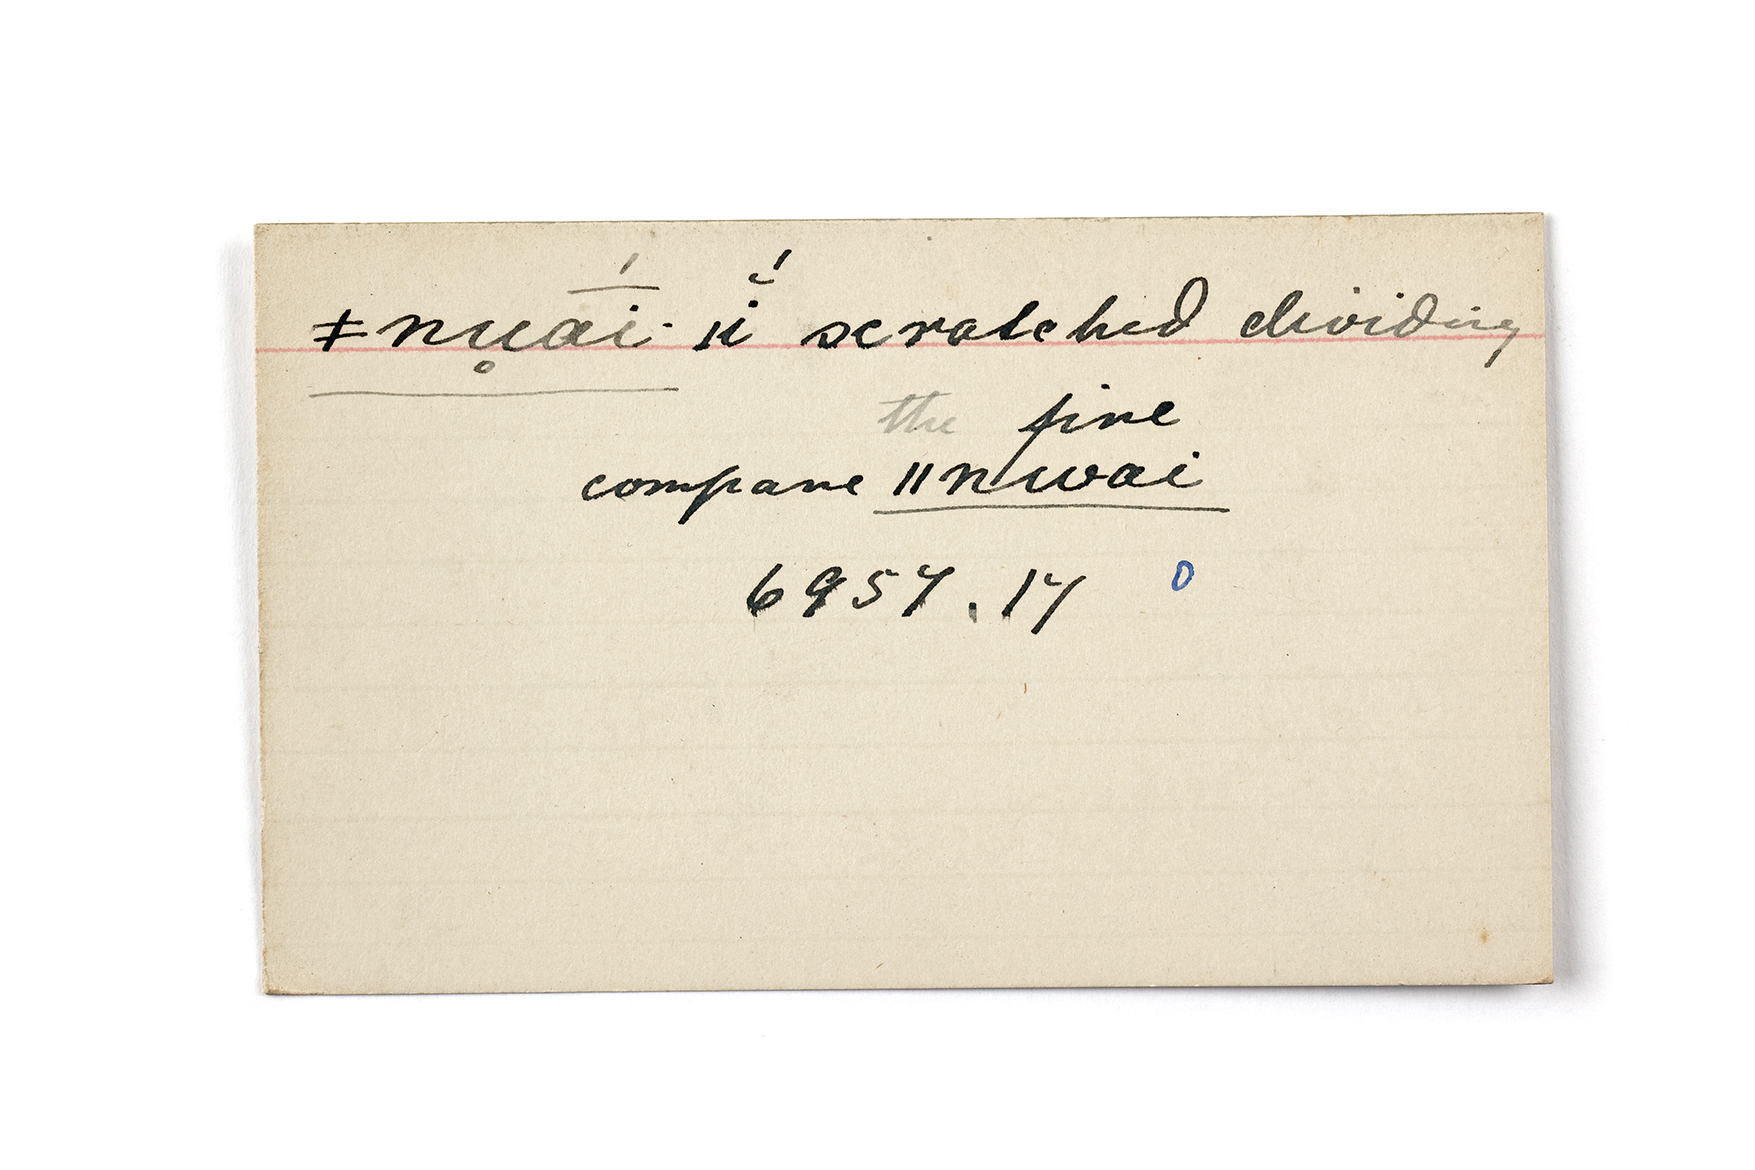 ǂnu̥ai̅́· ǁĭ́ scratched dividing
the fire
compare ǁnwai
6957.17 0